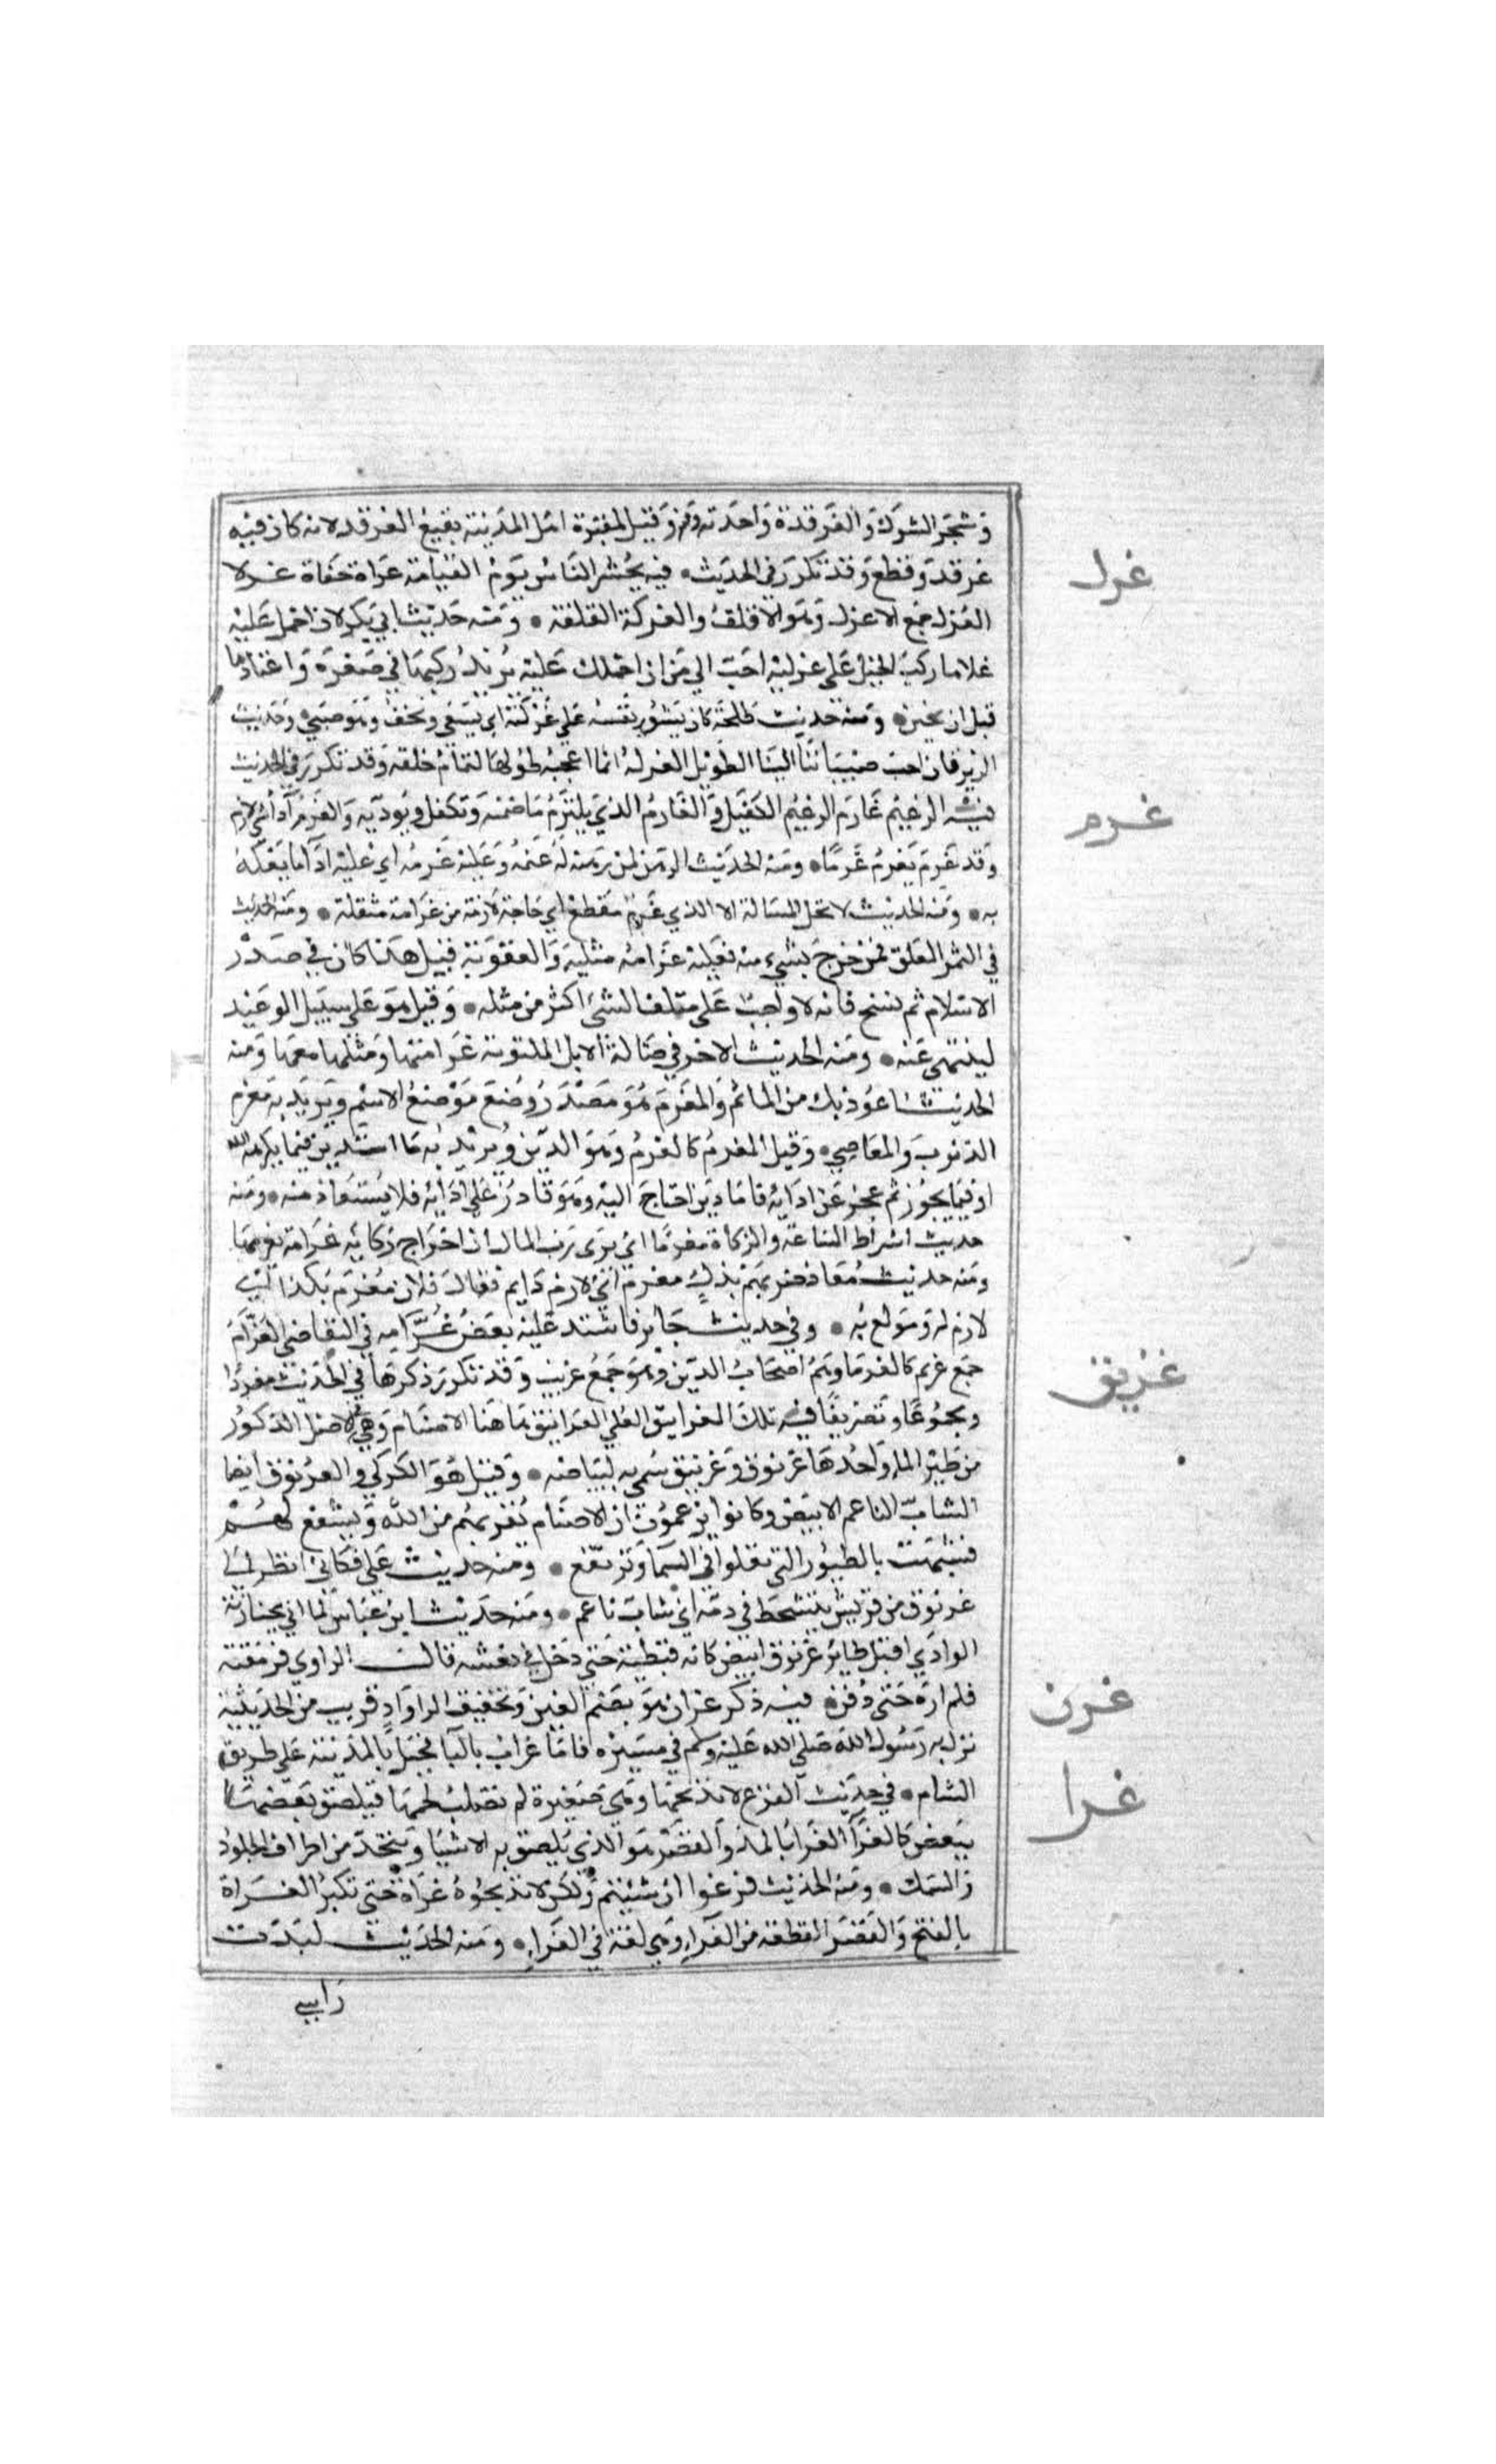 وشجر الشوك والغرقدة واحدته ومنه وقيل لمقبرة اهل المدينة بقيع الغرقد لانه كان فيه
غرقد وقطع وقد تكرر في الحديث • فيه يحشر الناس يوم القيامة عراة حفاة غرلا
غرل
الغرل جمع الاغرل وهو الاقلف والغرلة القلفة • ومنه حديث ابي بكر لان احمل عليه
غلاما ركب الخيل على غرلته احب الي من ان احملك عليه يريد ركبها في صغره واعتادها
قبل ان يختن • ومنه حديث طلحة كان يشور نفسه على غرلته اي يسعى ويخف وهو صبي وحديث
الزبرقان احب صبياننا الينا الطويل الغرلة انما اعجبه طولها لتمام خلقه وقد تكرر في الحديث
فيه الزعيم غارم الزعيم الكفيل والغارم الذي يلتزم ما ضمنه وتكفل ويؤديه والغرم آداء شي لازم
غرم
وقد غرم يغرم غرما • ومنه الحديث الرهن لمن رهنه له غنمه وعليه غرمه اي عليه اداما يفكه
به • ومنه الحديث لا تحل المسالة الا الذي غرم مفظع اي حاجة لازمة من غرامة مثقلة • ومنه الحديث
في الثمر المعلق فمن خرج بشيء منه فعليه غرامة مثليه والعقوبة قيل هذا كان في صدر
الاسلام ثم نسخ فانه لا واجب على متلف الشئ اكثر من مثله • وقيل هو على سبيل الوعيد
لينتهي عنه • ومنه الحديث الاخر في ضالة الابل المكتومة غرامتها ومثلها معها ومنه
الحديث اعوذ بك من الماثم والمغرم هو مصدر وضع موضع الاسم ويريد به مغرم
الذنوب والمعاصي • وقيل المغرم كالغرم وهو الدين ويريد به ما استدين فيما يكرهه الله
او فيما يجوز ثم عجز عن ادائه فاما دين احتاج اليه وهو قادر على ادائه فلا يستعاذ منه • ومنه
حديث اشراط الساعة والزكاة مغرما اي يرى رب المال ان اخراج زكاته غرامة يغرمها
ومنه حديث معاذ ضربهم بذل مغرم اي لازم دايم فقال فلان مغرم بكذا اي
لازم له ومولع به • وفي حديث جابر فاشتد عليه بعض غرامه في التقاضي الغرام
جمع غريم كالغرما وهم اصحاب الدين وهو جمع غريب وقد تكرر ذكرها في الحديث مفردا
ومجموعا وتصريفا فيه تلك الغرانيق العلي الغرانيق هاهنا الاصنام وهي في الاصل الذكور
غرنق
من طير الما واحدها غرنوق وغرنيق سمي به لبياضه • وقيل هو الكركي والغرنوق ايضا
الشاب الناعم الابيض وكانوا يزعمون ان الاصنام تقربهم من الله وتشفع لهم
فشبهت بالطيور التي تعلوا في السما وترتفع • ومنه حديث علي فكاني انظر الى
غرنوق من قريش يتشحط في دمه اي شاب ناعم • ومنه حديث ابن عباس لما اتي بجنازته
الوادي اقبل طاير غرنوق ابيض كانه قبطية حتى دخل في نعشه قال الراوي فرمقته
فلم اره حتى دفن • فيه ذكر غران هو بضم الغين وتخفيف الرا واد قريب من الحديبية
غرن
نزل به رسول الله صلى الله عليه وسلم في مسيره فاما غراب بالبا فجبل بالمدينة على طريق
الشام • في حديث الفرع لا تذبحها وهي صغيرة لم تصلب لحمها فيلصق بعضها
غرا
ببعض كالغرا الغرا بالمد والقصر هو الذي يلصق به الاشيا ويتخذ من اطراف الجلود
والسمك • ومنه الحديث فرعوا ان شيتم ولكن لا تذبحوه غراة حتى تكبر الغراة
بالفتح والقصر القطعة من الغرا وهي لغة في الغراء • ومنه الحديث لبدت
راسي